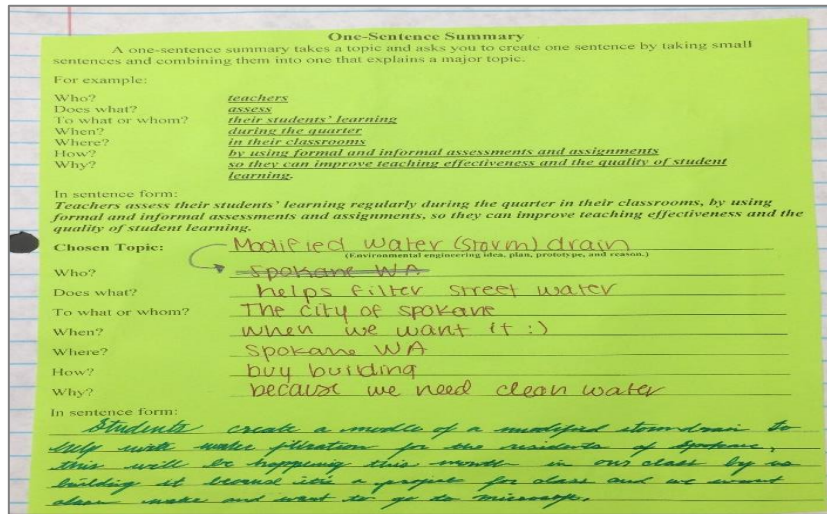 One-Sentence Summary
A one-sentence summary takes a topic and asks you to create one sentence by taking small
sentences and combining them into one that explains a major topic.
For example:
Who? teachers
Does what? assess
To what or whom? their students' learning
When? during the quarter
Where? in their classrooms
How? by using formal and informal assessments and assignments
Why? so they can improve teaching effectiveness and the quality of student
learning.
In sentence form:
Teachers assess their students' learning regularly during the quarter in their classrooms, by using
formal and informal assessments and assignments, so they can improve teaching effectiveness and the
quality of student learning.
Chosen Topic: Modified water (storm) drain
(Environmental engineering idea, plan, prototype, and reason.)
Who? Spokane WA
Does what? helps filter street water
To what or whom? The city of spokane
When? when we want it :)
Where? Spokane WA
How? buy building
Why? because we need clean water
In sentence form:
Students create a modle of a modified storm drain to
help with water filtration for the residents of Spokane,
this will be happening this month in our class by us
building it because it's a project for class and we want
clean and want to go do